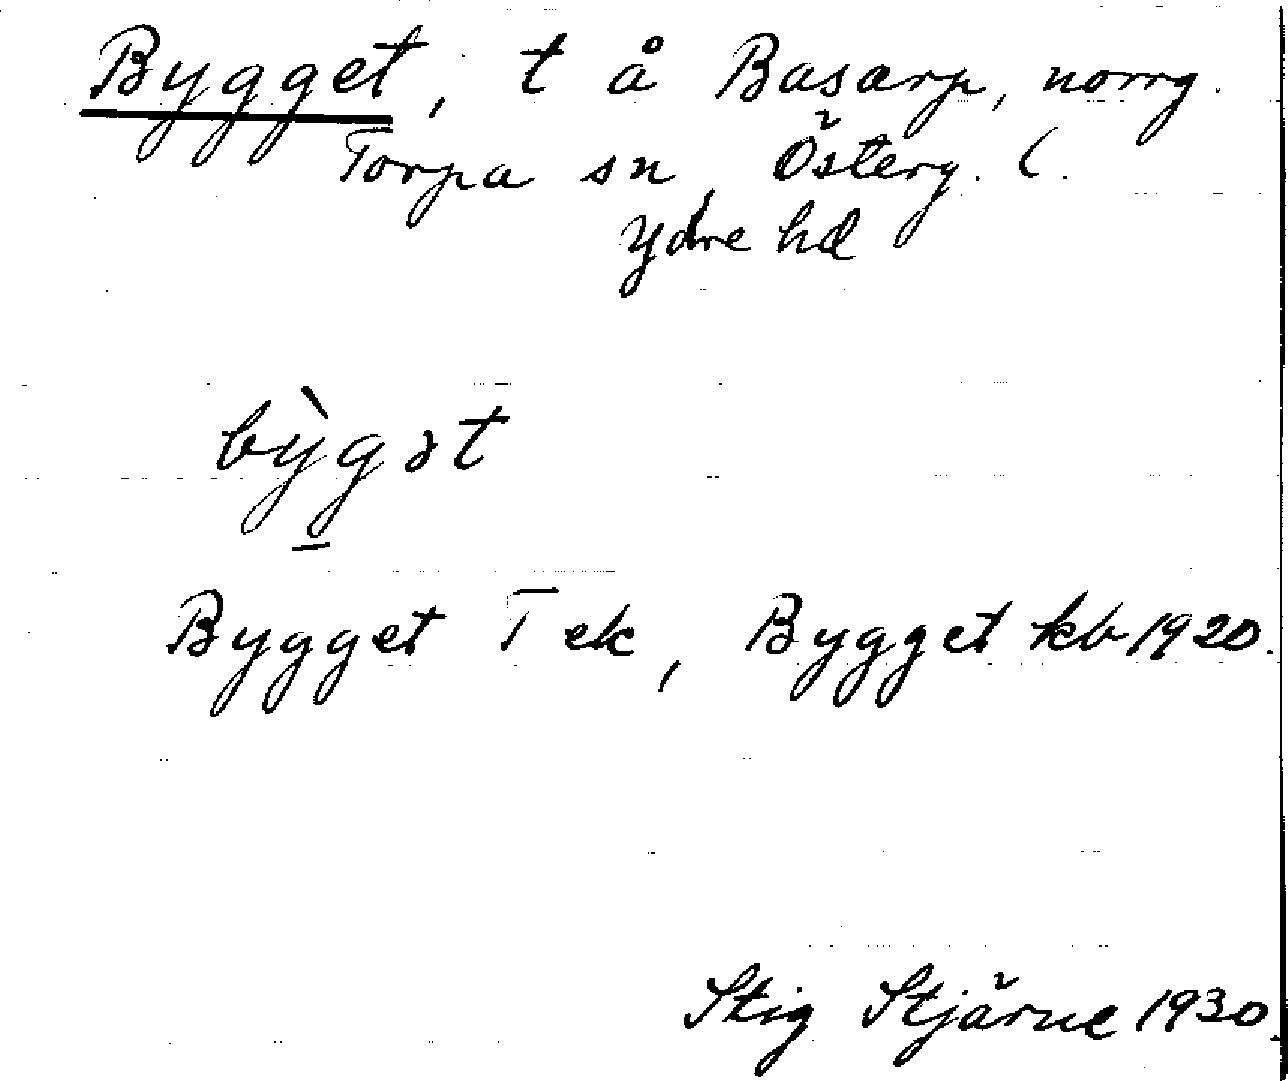 Bygget, t å Basarp, norrg.
Torpa sn, Österg. (.
Ydre hd
bỳgət
Bygget T ek, Bygget kb 1920.
Stig Stjärne 1930.